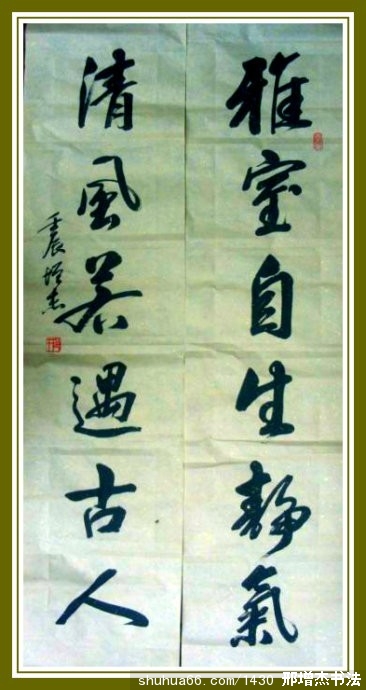 雅室自生静氣
清風若遇古人
壬辰增杰
shuhua66.com/1430 邢增杰书法